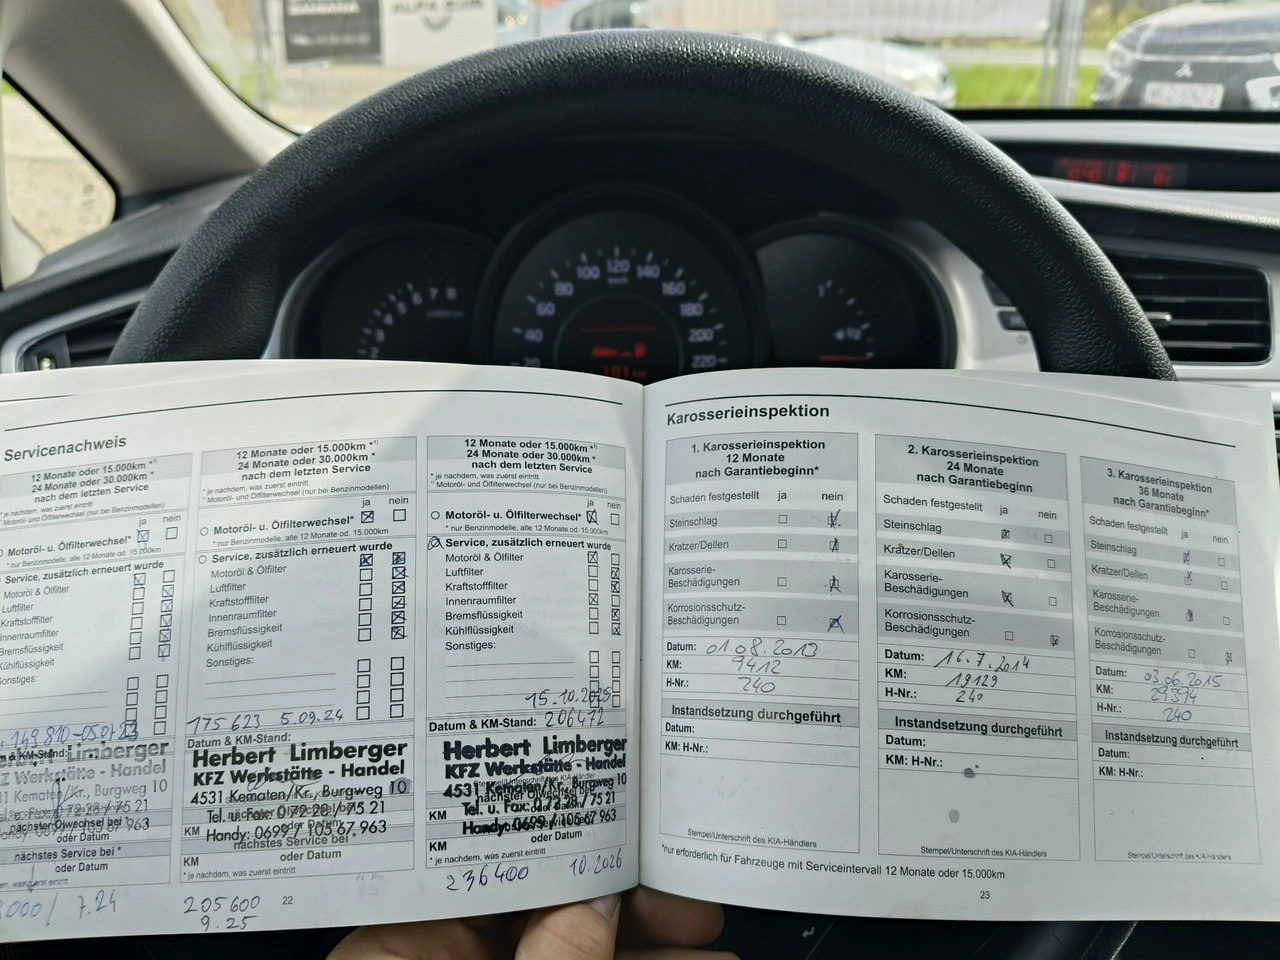 ALFA ROMEO
Servicenachweis
12 Monate oder 15.000km *¹⁾
24 Monate oder 30.000km *
nach dem letzten Service
* je nachdem, was zuerst eintritt
¹⁾ Motoröl- und Ölfilterwechsel (nur bei Benzinmodellen)
ja nein
Motoröl- u. Ölfilterwechsel*
* nur Benzinmodelle, alle 12 Monate od. 15.000km
Service, zusätzlich erneuert wurde
Motoröl & Ölfilter
Luftfilter
Kraftstofffilter
Innenraumfilter
Bremsflüssigkeit
Kühlflüssigkeit
Sonstiges:
149 810-05.07.23
& KM-Stand:
Limberger
Werkstätte - Handel
Kematen/Kr., Burgweg 10
nächster Ölwechsel bei *
oder Datum
nächstes Service bei *
oder Datum
000/ 7.24
12 Monate oder 15.000km *¹⁾
24 Monate oder 30.000km *
nach dem letzten Service
* je nachdem, was zuerst eintritt
¹⁾ Motoröl- und Ölfilterwechsel (nur bei Benzinmodellen)
ja nein
Motoröl- u. Ölfilterwechsel*
* nur Benzinmodelle, alle 12 Monate od. 15.000km
Service, zusätzlich erneuert wurde
Motoröl & Ölfilter
Luftfilter
Kraftstofffilter
Innenraumfilter
Bremsflüssigkeit
Kühlflüssigkeit
Sonstiges:
175 623 5.09.24
Datum & KM-Stand:
Herbert Limberger
KFZ Werkstätte - Handel
4531 Kematen/Kr., Burgweg 10
nächster Ölwechsel bei *
Tel. u. Fax: 0 72 28 / 75 21
KM oder Datum
Handy: 0699 / 105 67 963
nächstes Service bei *
KM oder Datum
* je nachdem, was zuerst eintritt
205600
9.25
22
12 Monate oder 15.000km *¹⁾
24 Monate oder 30.000km *
nach dem letzten Service
* je nachdem, was zuerst eintritt
¹⁾ Motoröl- und Ölfilterwechsel (nur bei Benzinmodellen)
ja nein
Motoröl- u. Ölfilterwechsel*
* nur Benzinmodelle, alle 12 Monate od. 15.000km
Service, zusätzlich erneuert wurde
Motoröl & Ölfilter
Luftfilter
Kraftstofffilter
Innenraumfilter
Bremsflüssigkeit
Kühlflüssigkeit
Sonstiges:
15.10.2025
Datum & KM-Stand: 206472
Herbert Limberger
KFZ Werkstätte - Handel
Stempel/Unterschrift des KIA-Händler
4531 Kematen/Kr., Burgweg 10
nächster Ölwechsel bei *
Tel. u. Fax: 0 72 28 / 75 21
KM oder Datum
Handy: 0699 / 105 67 963
KM oder Datum
* je nachdem, was zuerst eintritt
236400 10.2026
Karosserieinspektion
1. Karosserieinspektion
12 Monate
nach Garantiebeginn*
Schaden festgestellt ja nein
Steinschlag
Kratzer/Dellen
Karosserie-
Beschädigungen
Korrosionsschutz-
Beschädigungen
Datum: 01.08.2013
KM: 9412
H-Nr.: 240
Instandsetzung durchgeführt
Datum:
KM: H-Nr.:
Stempel/Unterschrift des KIA-Händlers
2. Karosserieinspektion
24 Monate
nach Garantiebeginn
Schaden festgestellt ja nein
Steinschlag
Kratzer/Dellen
Karosserie-
Beschädigungen
Korrosionsschutz-
Beschädigungen
Datum: 16.7.2014
KM: 19129
H-Nr.: 240
Instandsetzung durchgeführt
Datum:
KM: H-Nr.:
Stempel/Unterschrift des KIA-Händlers
3. Karosserieinspektion
36 Monate
nach Garantiebeginn*
Schaden festgestellt ja nein
Steinschlag
Kratzer/Dellen
Karosserie-
Beschädigungen
Korrosionsschutz-
Beschädigungen
Datum: 03.06.2015
KM: 29394
H-Nr.: 240
Instandsetzung durchgeführt
Datum:
KM: H-Nr.:
Stempel/Unterschrift des KIA-Händlers
*nur erforderlich für Fahrzeuge mit Serviceintervall 12 Monate oder 15.000km
23
20 40 60 80 100 120 140 160 180 200 220
2 3 4 5 6 7 8
1/2 1